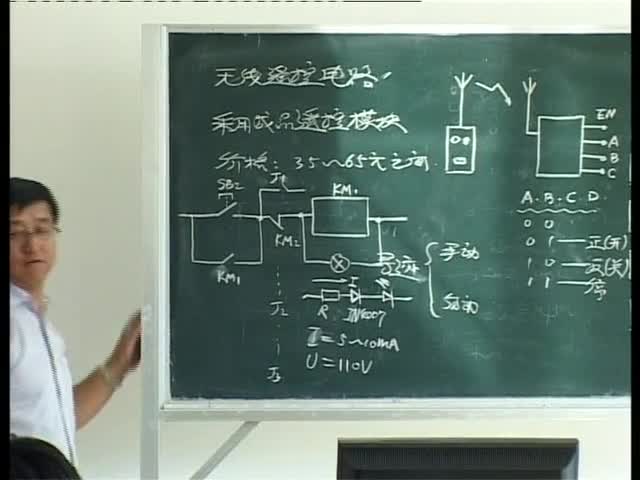 无线遥控电路
采用成品遥控模块
价格：35～65元之间
EN
A
B
C
SB2
J1
KM1
KM2
KM1
手动
自动
J2
R IN4007
I=5～10mA
U=110V
J3
A.B.C.D
0 0
0 1 — 正(开)
1 0 — 反(关)
1 1 — 停